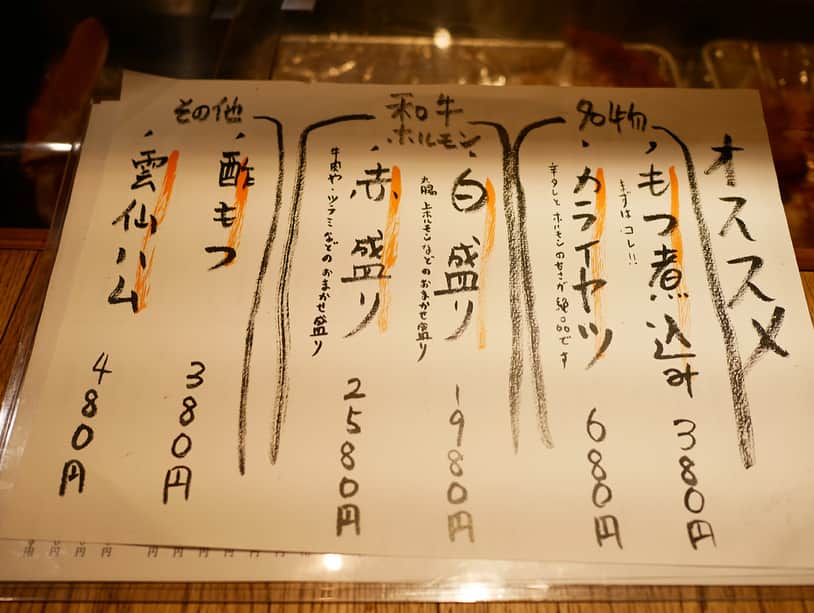 オススメ
名物
・もつ煮込み
まずはコレ!!
380円
・カライヤツ
辛タレとホルモンの甘さが絶品です
680円
和牛
ホルモン
・白盛り
丸腸、上ホルモンなどのおまかせ盛り
1980円
・赤盛り
牛肉や・ツラミなどのおまかせ盛り
2580円
その他
・酢もつ
380円
・雲仙ハム
480円
円 円 円 円 円 円 円 円 円